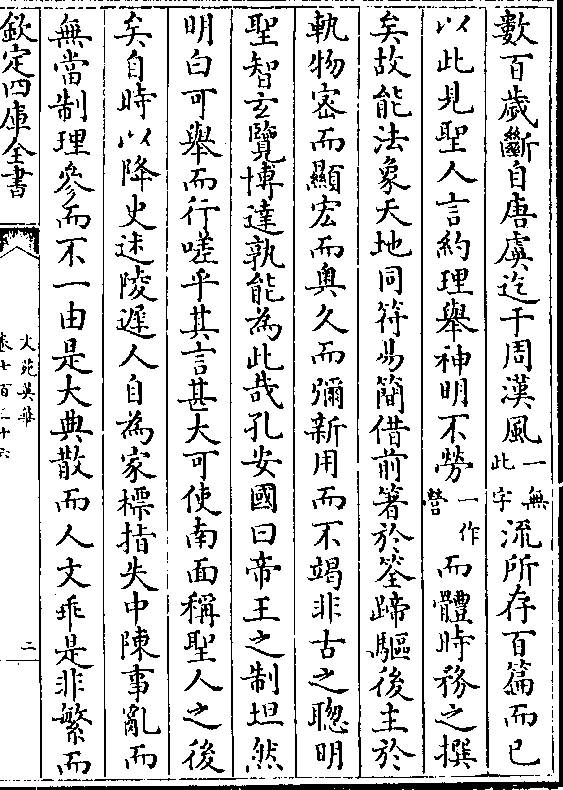 數百歲斷自唐虞迄于周漢風一無此字流所存百篇而已
以此見聖人言約理舉神明不勞一作嘗而體時務之撰
矣故能法象天地同符易簡借前箸於筌蹄驅後主於
軌物宻而顯宏而奥久而彌新用而不竭非古之聰明
聖智玄覽博達孰能為此哉孔安國曰帝王之制坦然
明白可舉而行嗟乎其言甚大可使南面稱聖人之後
矣自時以降史述陵遲人自為家標指失中陳事亂而
無當制理參而不一由是大典散而人文乖是非繁而
欽定四庫全書
文苑英華
卷七百三十六
二